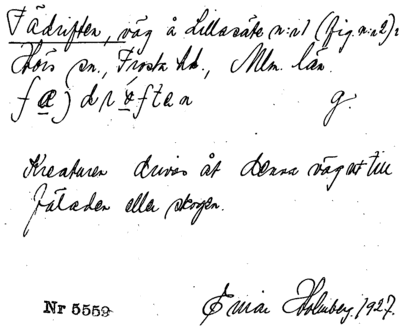 Fädriften, väg å Lillasäte n:r 1 (fig. n:r 2),
Hörs sn., Frosta hd., Mlm. län.
fæ) drøften g.
Kreaturen drivas åt denna väg ut till
fäladen eller skogen.
Nr 5559 Einar Holmberg. 1927.